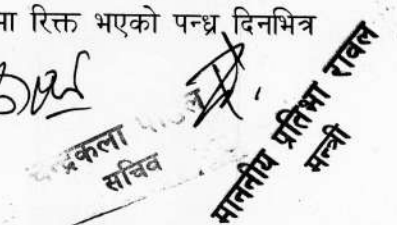 मा रिक्त भएको पन्ध्र दिनभित्र
चन्द्रकला
सचिव
माननीय प्रतिभा रावल
मन्त्री